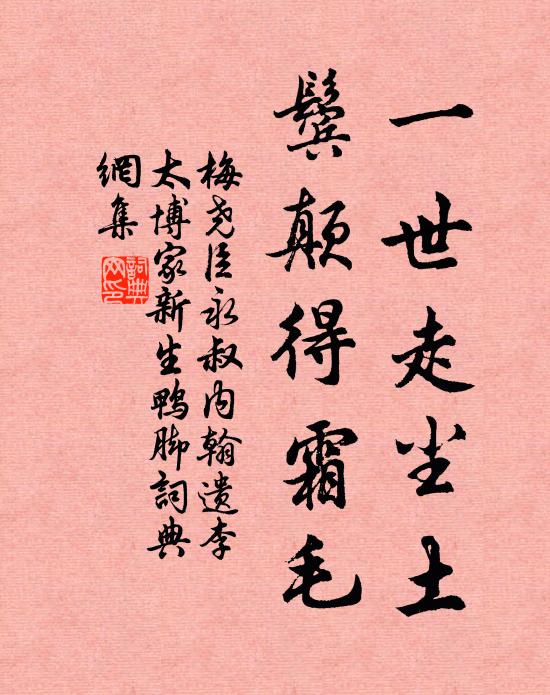 一世走尘土
鬓颠得霜毛
梅尧臣永叔内翰遗李
太博家新生鸭脚詞典
網集
詞典
网印